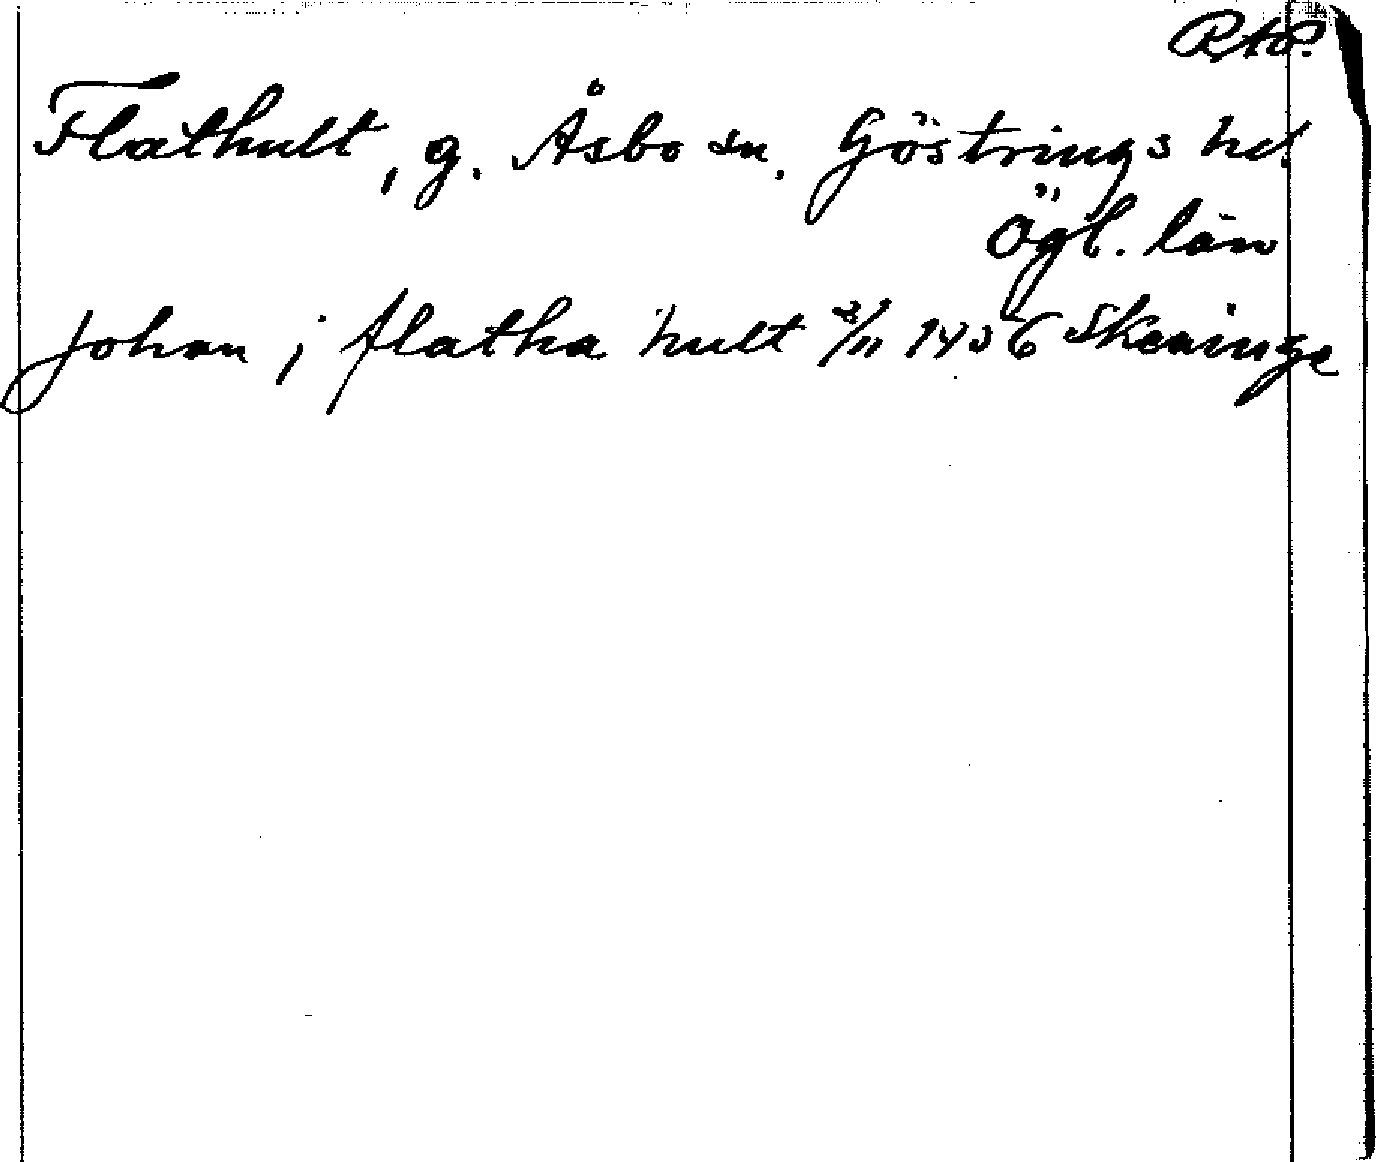 Rto.
Flathult, g. Åsbo sn. Göstrings hd.
Ögl. län
Johan j flatha hult 2/11 1456 Skeninge